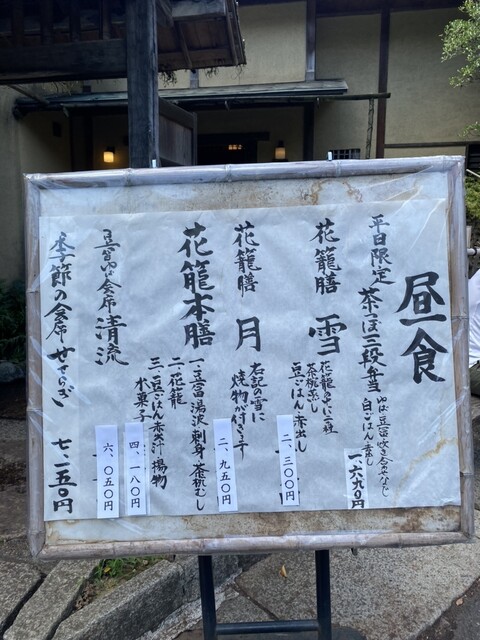 昼食
平日限定
茶つぼ三段弁当
ゆば豆富吹き合わせなど
白ごはん 赤だし
一、六九〇円
花籠膳 雪
花籠
茶椀むし
豆ごはん 赤出し
二、三〇〇円
花籠膳 月
右記の雪に
焼物が付きます
二、九五〇円
花籠本膳
一、豆富 湯波刺身 茶椀むし
二、花籠
三、豆ごはん 赤出汁 揚物
水菓子
四、一八〇円
豆富ゆば会席 清流
六、〇五〇円
季節の会席 せせらぎ
七、一五〇円